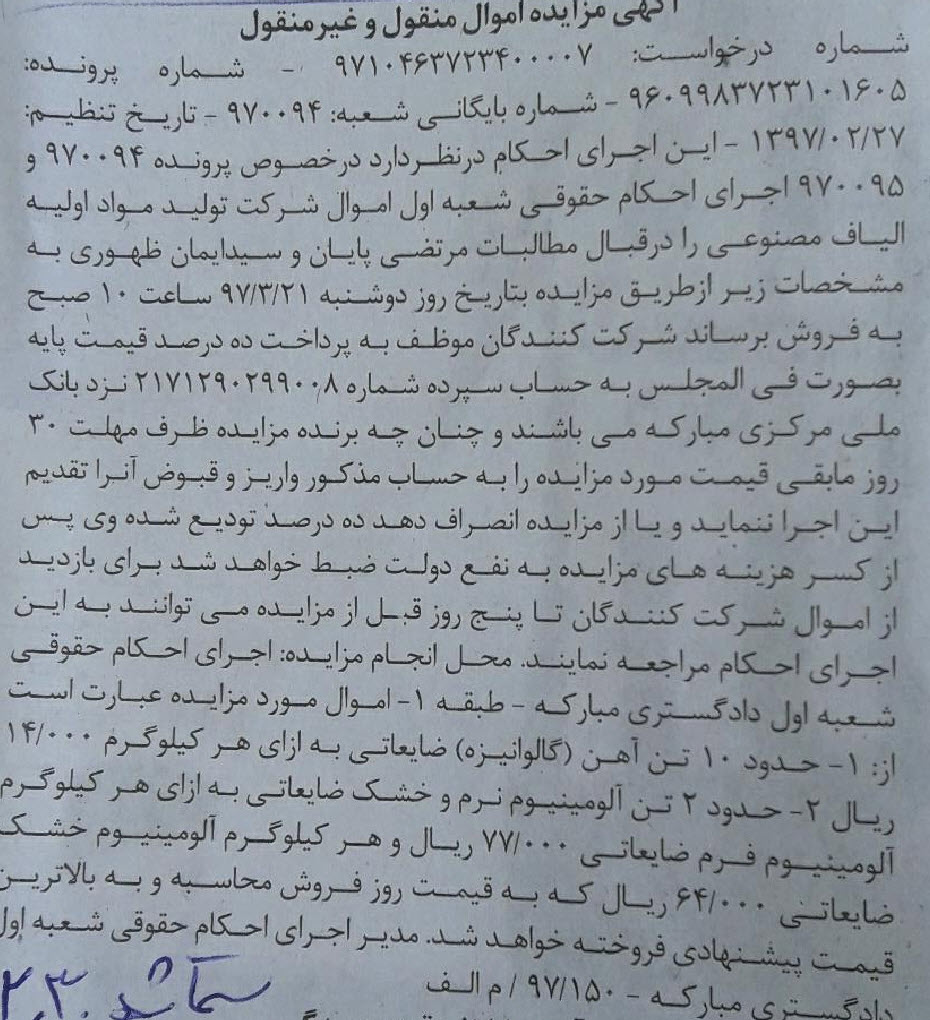 آگهی مزایده اموال منقول و غیرمنقول
شماره درخواست: ۹۷۱۰۴۶۳۷۲۳۴۰۰۰۰۷ - شماره پرونده:
۹۶۰۹۹۸۳۷۲۳۱۰۱۶۰۵ - شماره بایگانی شعبه: ۹۷۰۰۹۴ - تاریخ تنظیم:
۱۳۹۷/۰۲/۲۷ - این اجرای احکام درنظردارد درخصوص پرونده ۹۷۰۰۹۴ و
۹۷۰۰۹۵ اجرای احکام حقوقی شعبه اول اموال شرکت تولید مواد اولیه
الیاف مصنوعی را درقبال مطالبات مرتضی پایان و سیدایمان ظهوری به
مشخصات زیر ازطریق مزایده بتاریخ روز دوشنبه ۹۷/۳/۲۱ ساعت ۱۰ صبح
به فروش برساند شرکت کنندگان موظف به پرداخت ده درصد قیمت پایه
بصورت فی المجلس به حساب سپرده شماره ۲۱۷۱۲۹۰۲۹۹۰۰۸ نزد بانک
ملی مرکزی مبارکه می باشند و چنان چه برنده مزایده ظرف مهلت ۳۰
روز مابقی قیمت مورد مزایده را به حساب مذکور واریز و قبوض آنرا تقدیم
این اجرا ننماید و یا از مزایده انصراف دهد ده درصد تودیع شده وی پس
از کسر هزینه های مزایده به نفع دولت ضبط خواهد شد برای بازدید
از اموال شرکت کنندگان تا پنج روز قبل از مزایده می توانند به این
اجرای احکام مراجعه نمایند. محل انجام مزایده: اجرای احکام حقوقی
شعبه اول دادگستری مبارکه - طبقه ۱- اموال مورد مزایده عبارت است
از: ۱- حدود ۱۰ تن آهن (گالوانیزه) ضایعاتی به ازای هر کیلوگرم ۱۴/۰۰۰
ریال ۲- حدود ۲ تن آلومینیوم نرم و خشک ضایعاتی به ازای هر کیلوگرم
آلومینیوم فرم ضایعاتی ۷۷/۰۰۰ ریال و هر کیلوگرم آلومینیوم خشک
ضایعاتی ۶۴/۰۰۰ ریال که به قیمت روز فروش محاسبه و به بالاترین
قیمت پیشنهادی فروخته خواهد شد. مدیر اجرای احکام حقوقی شعبه اول
دادگستری مبارکه - ۹۷/۱۵۰ / م الف